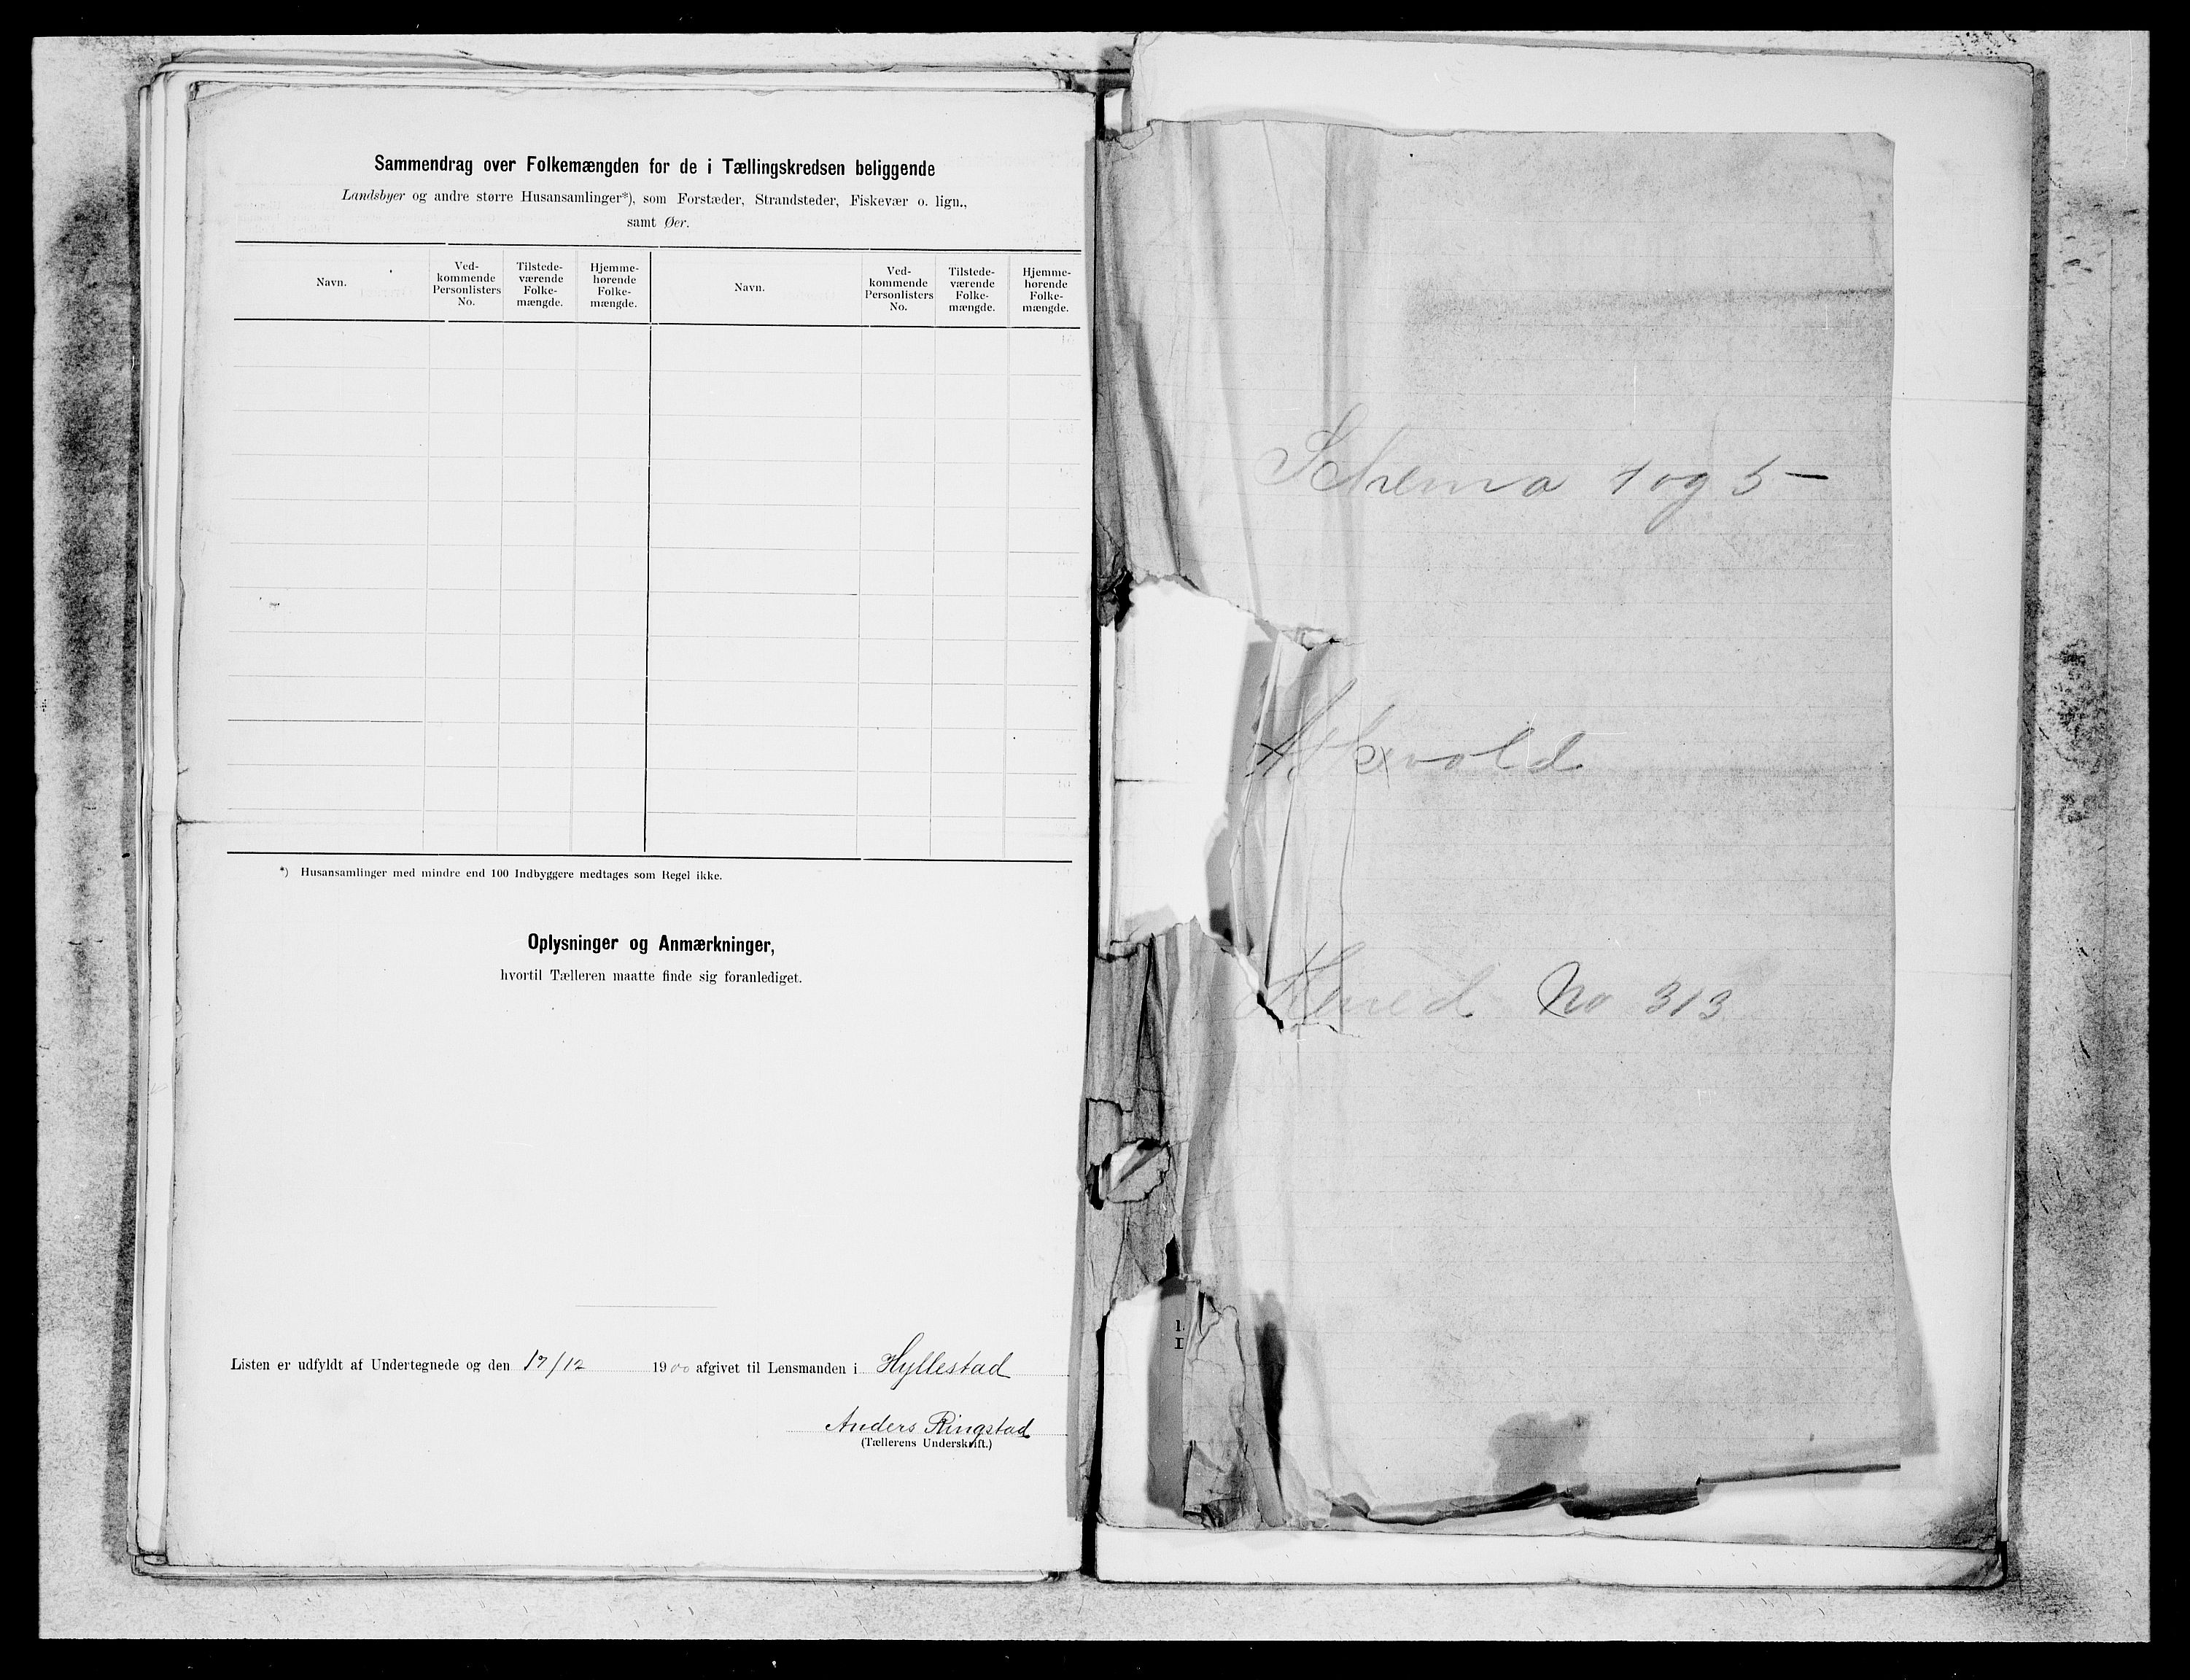 Sammendrag over Folkemængden for de i Tællingskredsen beliggende
Landsbyer og andre større Husansamlinger*), som Forstæder, Strandsteder, Fiskevær o. lign.,
samt Øer.
Navn.
Ved-
kommende
Personlisters
No.
Tilstede-
værende
Folke-
mængde.
Hjemme-
hørende
Folke-
mængde.
Navn.
Ved-
kommende
Personlisters
No.
Tilstede-
værende
Folke-
mængde.
Hjemme-
hørende
Folke-
mængde.
*) Husansamlinger med mindre end 100 Indbyggere medtages som Regel ikke.
Oplysninger og Anmærkninger,
hvortil Tælleren maatte finde sig foranlediget.
Listen er udfyldt af Undertegnede og den 17/12 1900 afgivet til Lensmanden i Hyllestad
Anders Ringstad
(Tællerens Underskrift.)
Schema 1 og 5 —
Askvold
Hered No 313